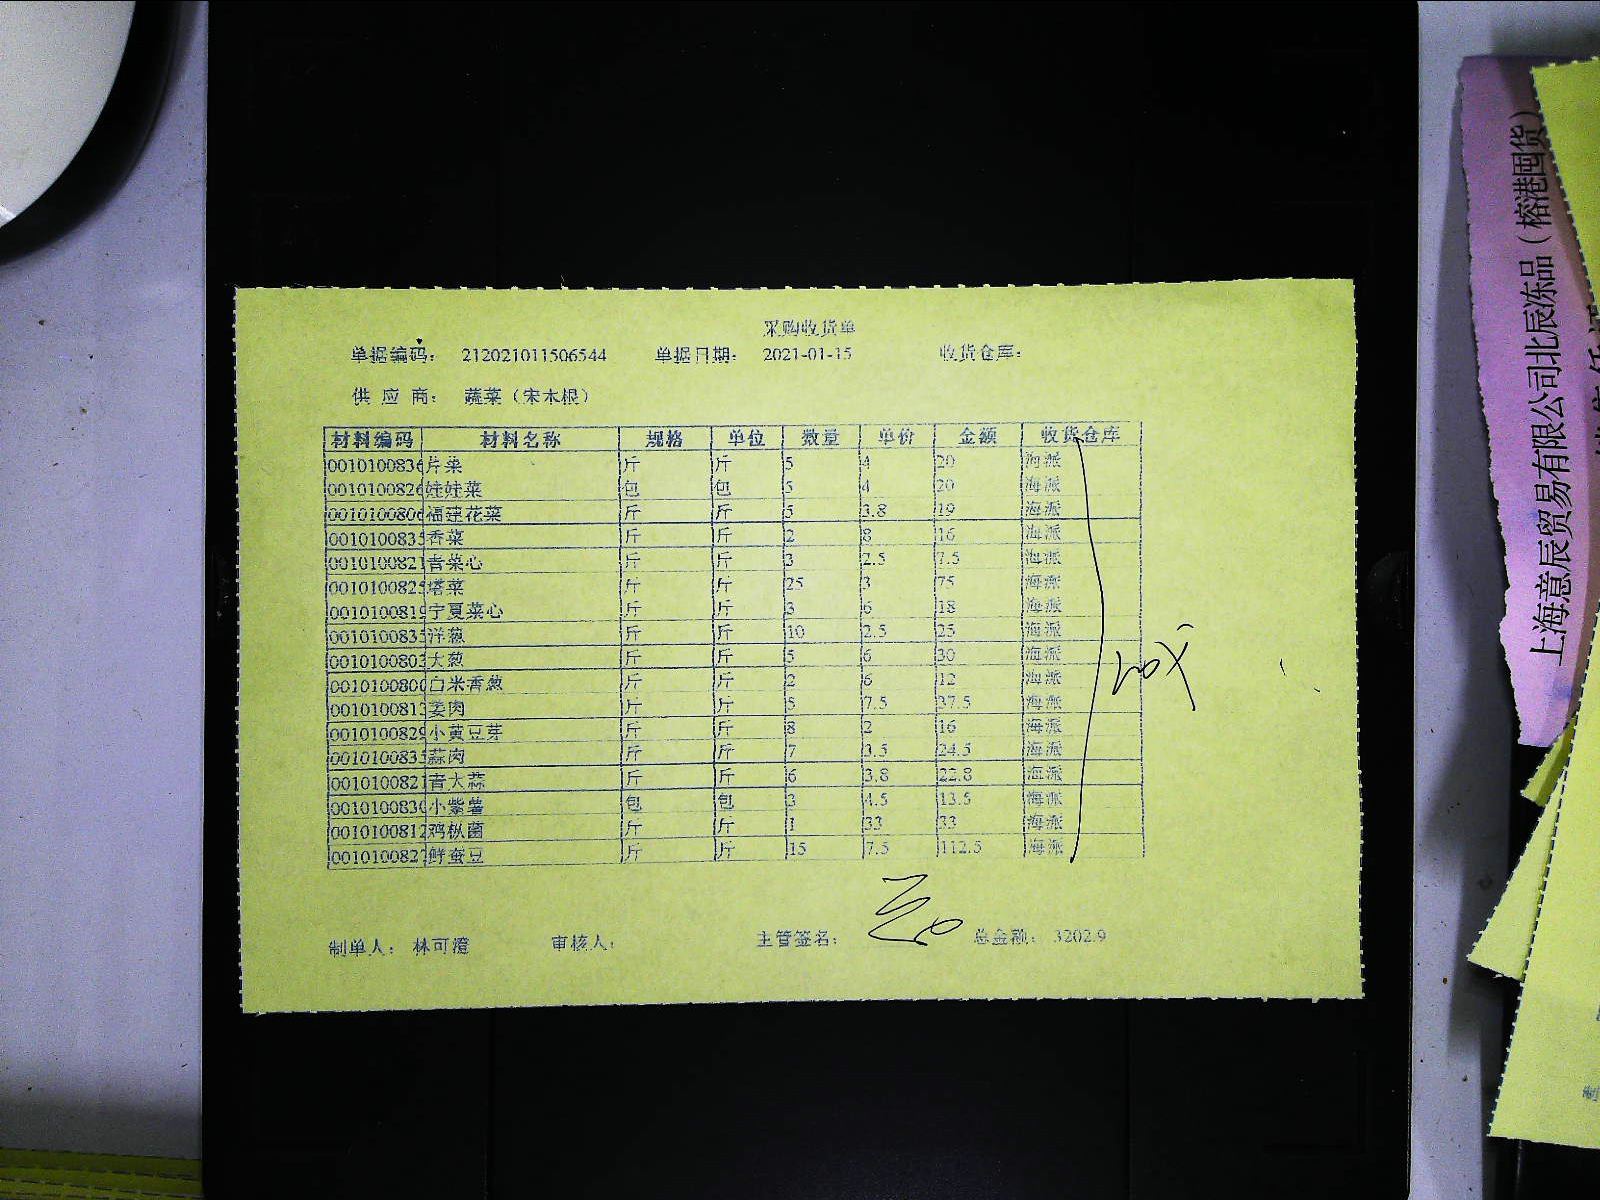 采购收货单
单据编码： 212021011506544 单据日期： 2021-01-15 收货仓库：
供 应 商： 蔬菜（宋木根）
材料编码 材料名称 规格 单位 数量 单价 金额 收货仓库
0010100836 芹菜 斤 斤 5 4 20 海派
0010100826 娃娃菜 包 包 5 4 20 海派
0010100806 福建花菜 斤 斤 5 3.8 19 海派
0010100835 香菜 斤 斤 2 8 16 海派
0010100821 青菜心 斤 斤 3 2.5 7.5 海派
0010100825 塔菜 斤 斤 25 3 75 海派
0010100819 宁夏菜心 斤 斤 3 6 18 海派
0010100835 洋葱 斤 斤 10 2.5 25 海派
0010100803 大葱 斤 斤 5 6 30 海派
0010100800 白米香葱 斤 斤 2 6 12 海派
0010100813 姜肉 斤 斤 5 7.5 37.5 海派
0010100829 小黄豆芽 斤 斤 8 2 16 海派
0010100835 蒜肉 斤 斤 7 3.5 24.5 海派
0010100821 青大蒜 斤 斤 6 3.8 22.8 海派
0010100830 小紫薯 包 包 3 4.5 13.5 海派
0010100812 鸡枞菌 斤 斤 1 33 33 海派
0010100827 鲜蚕豆 斤 斤 15 7.5 112.5 海派
制单人： 林可澄 审核人： 主管签名： 总金额： 3202.9
上海意辰贸易有限公司北辰冻品（榕港囤货）